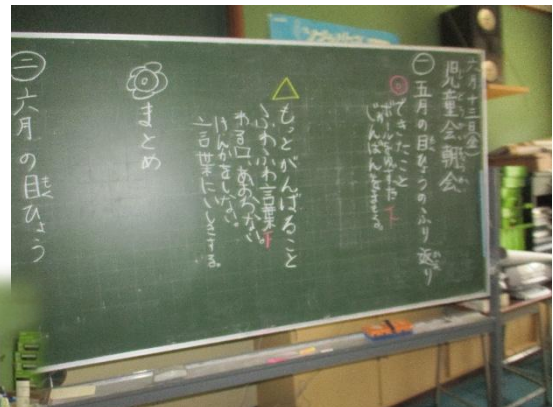 六月十三日(金)
児童会朝会
一 五月の目ひょうのふり返り
◎できたこと
ボールをゆずった
じゅんばんをまもる。
△もっとがんばること
ふわふわ言葉
わる口、あおらない。
けんかをしない。
言葉にいしきする。
まとめ
二 六月の目ひょう